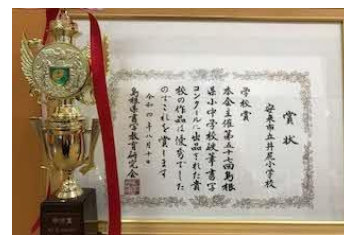 賞状
学校賞
安来市立井尻小学校
本会主催第五十七回島根
県小中学校硬筆書写
コンクールに出品された貴
校の作品は優秀でした
のでこれを賞します
令和四年八月十日
島根県書写教育研究会